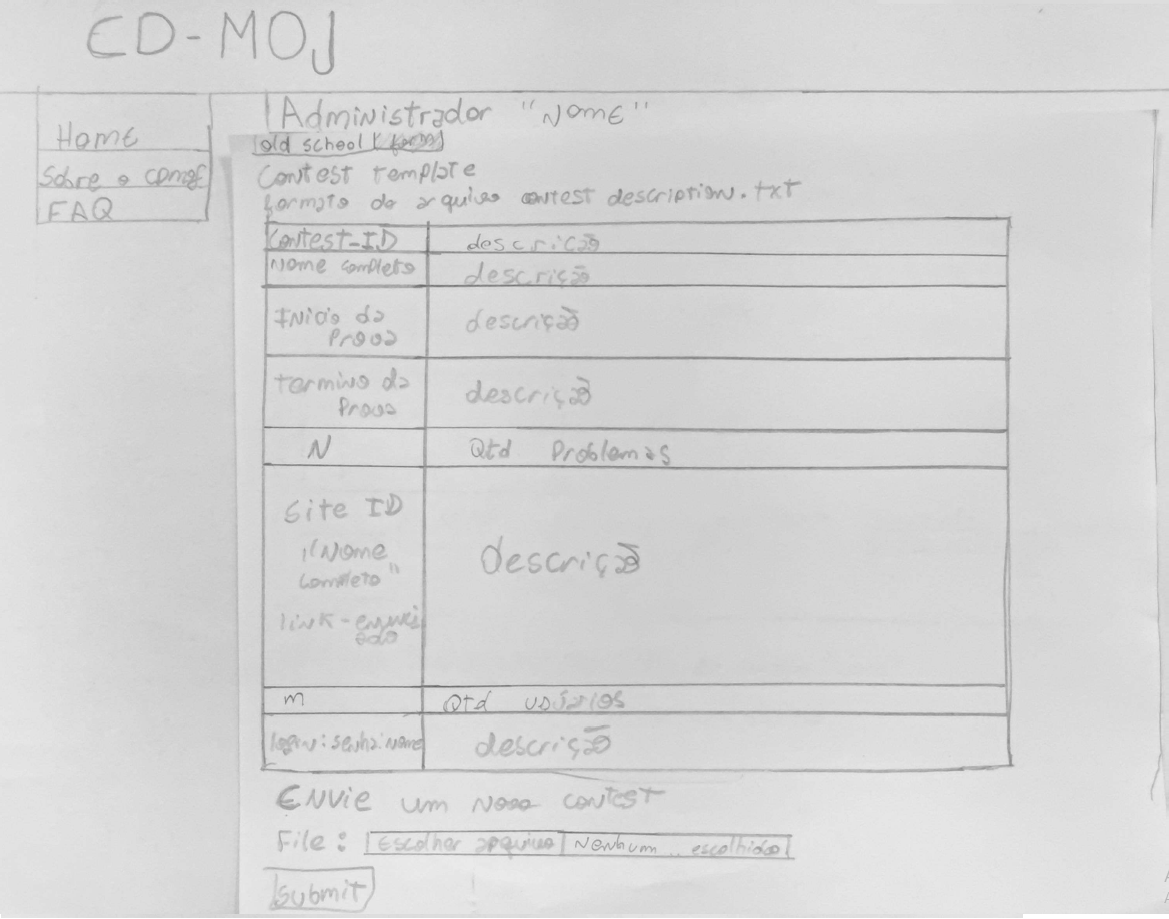 CD-MOJ
Home
Sobre o cdmoj
FAQ
Administrador "Nome"
old school
Contest template
formato do arquivo contest description.txt
Contest-ID descrição
Nome completo descrição
Início da
Prova
descrição
termino da
Prova
descrição
N Qtd Problemas
Site ID
"Nome
completo"
link-enunci
ado
descrição
m Qtd usúarios
login:senha:nome descrição
Envie um novo contest
File: Escolher arquivo Nenhum .. escolhido
Submit